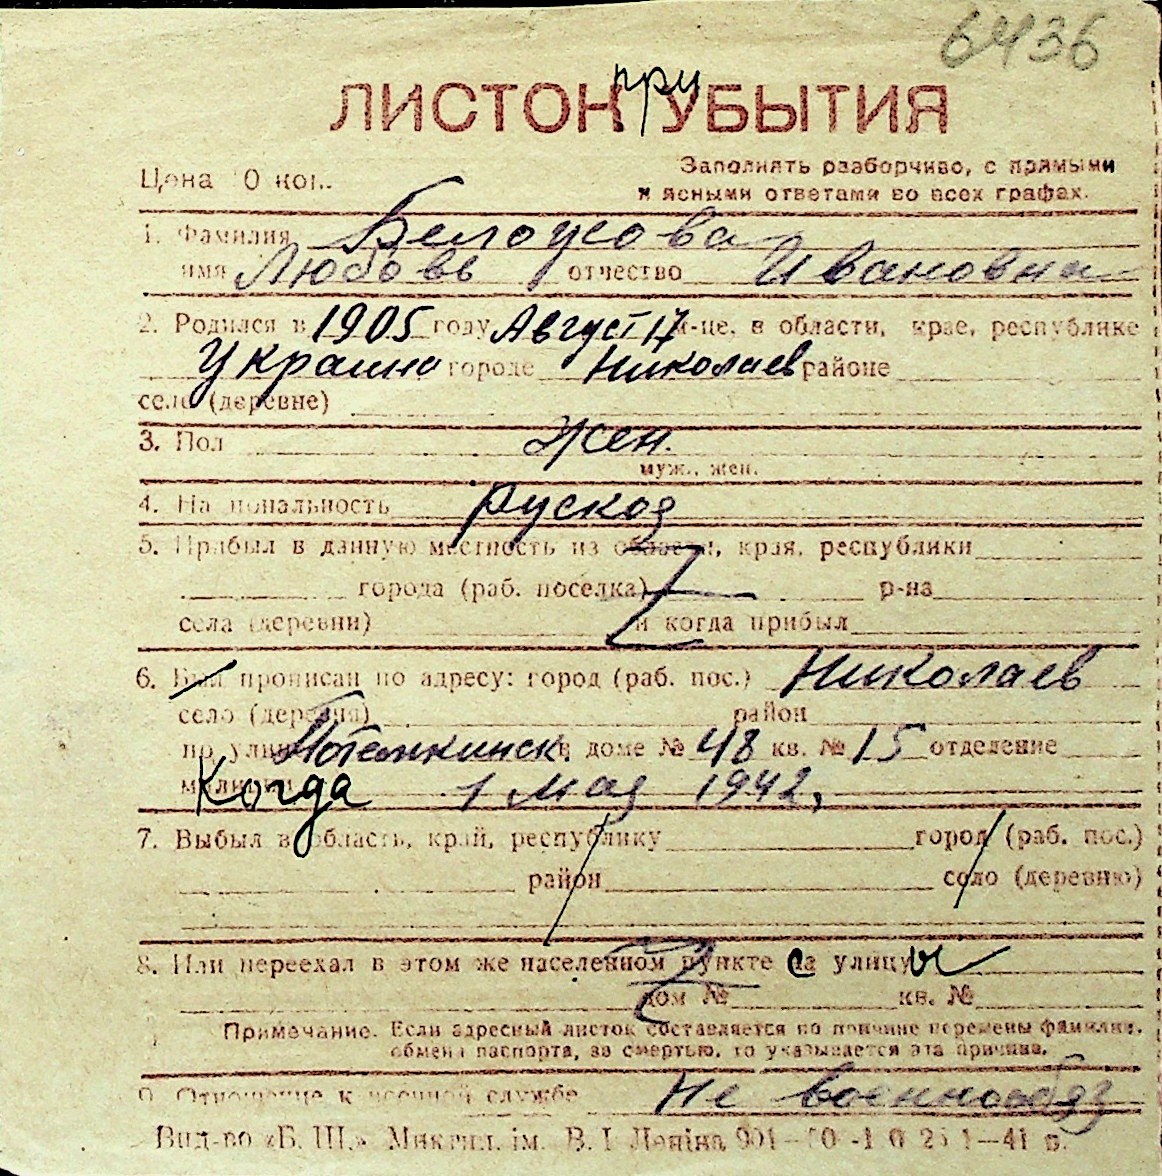 6436
ЛИСТОК при УБЫТИЯ
Цена 10 коп.
Заполнять разборчиво, с прямыми
и ясными ответами во всех графах.
1. Фамилия Белоусова
имя Любовь отчество Ивановна
2. Родился в 1905 году Август 17 м-це, в области, крае, республике
Украина городе Николаев районе
село (деревне)
3. Пол жен.
муж., жен.
4. Национальность руская
5. Прибыл в данную местность из области, края, республики
города (раб. поселка) р-на
села (деревни) и когда прибыл
6. Был прописан по адресу: город (раб. пос.) Николаев
село (деревня) район
по улице Потемкинск. в доме № 48 кв. № 15 отделение
милиции Когда 1 мая 1942,
7. Выбыл в область, край, республику город (раб. пос.)
район село (деревню)
8. Или переехал в этом же населенном пункте с на улицуы
дом № кв. №
Примечание. Если адресный листок составляется по причине перемены фамилии,
обмена паспорта, за смертью, то указывается эта причина.
9. Отношение к военной службе Не военнообяз
Вид-во «Б. Ш.» Микол. ім. В. І. Леніна 901